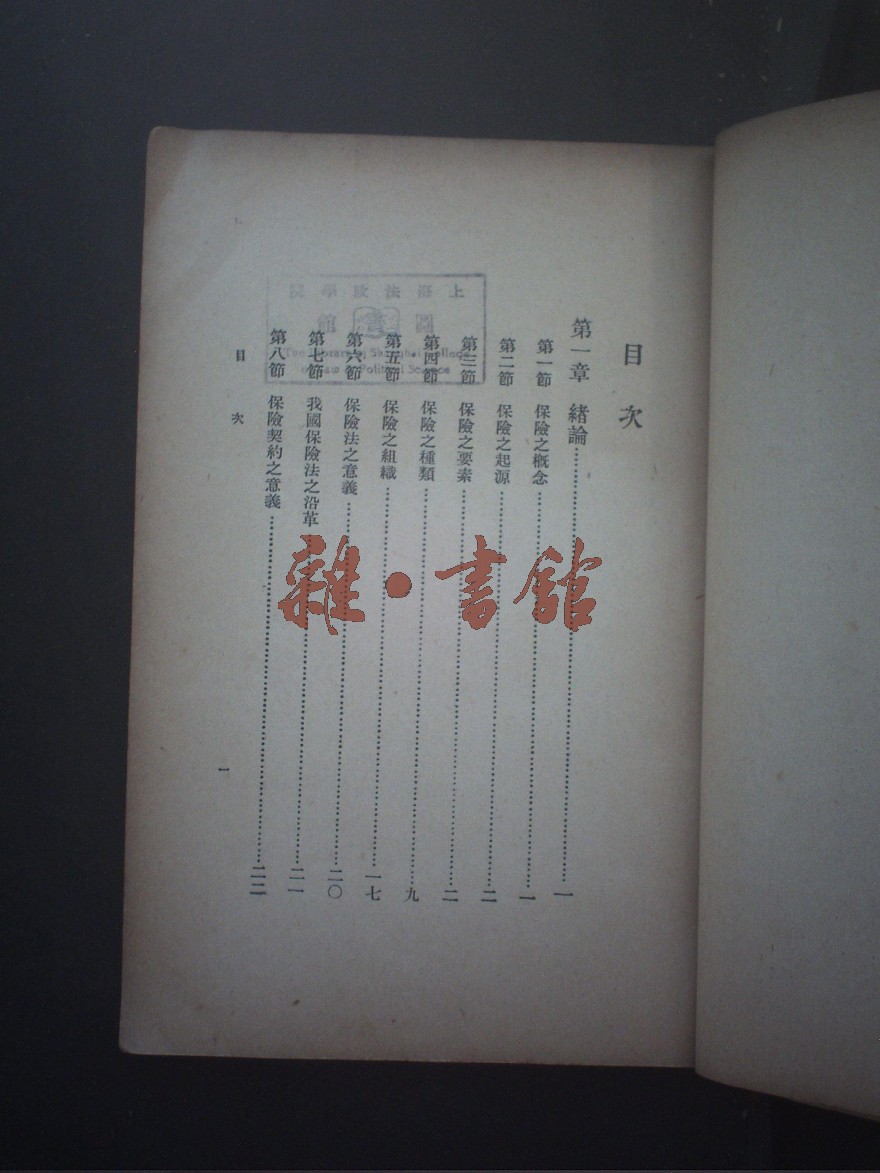 目次
第一章 緒論……一
第一節 保險之概念……一
第二節 保險之起源……二
第三節 保險之要素……二
第四節 保險之種類……九
第五節 保險之組織……一七
第六節 保險法之意義……二〇
第七節 我國保險法之沿革……二一
第八節 保險契約之意義……二二
目次
一
上海法政學院
圖書館
The Library of Shanghai College
of Law & Political Science
雜·書館